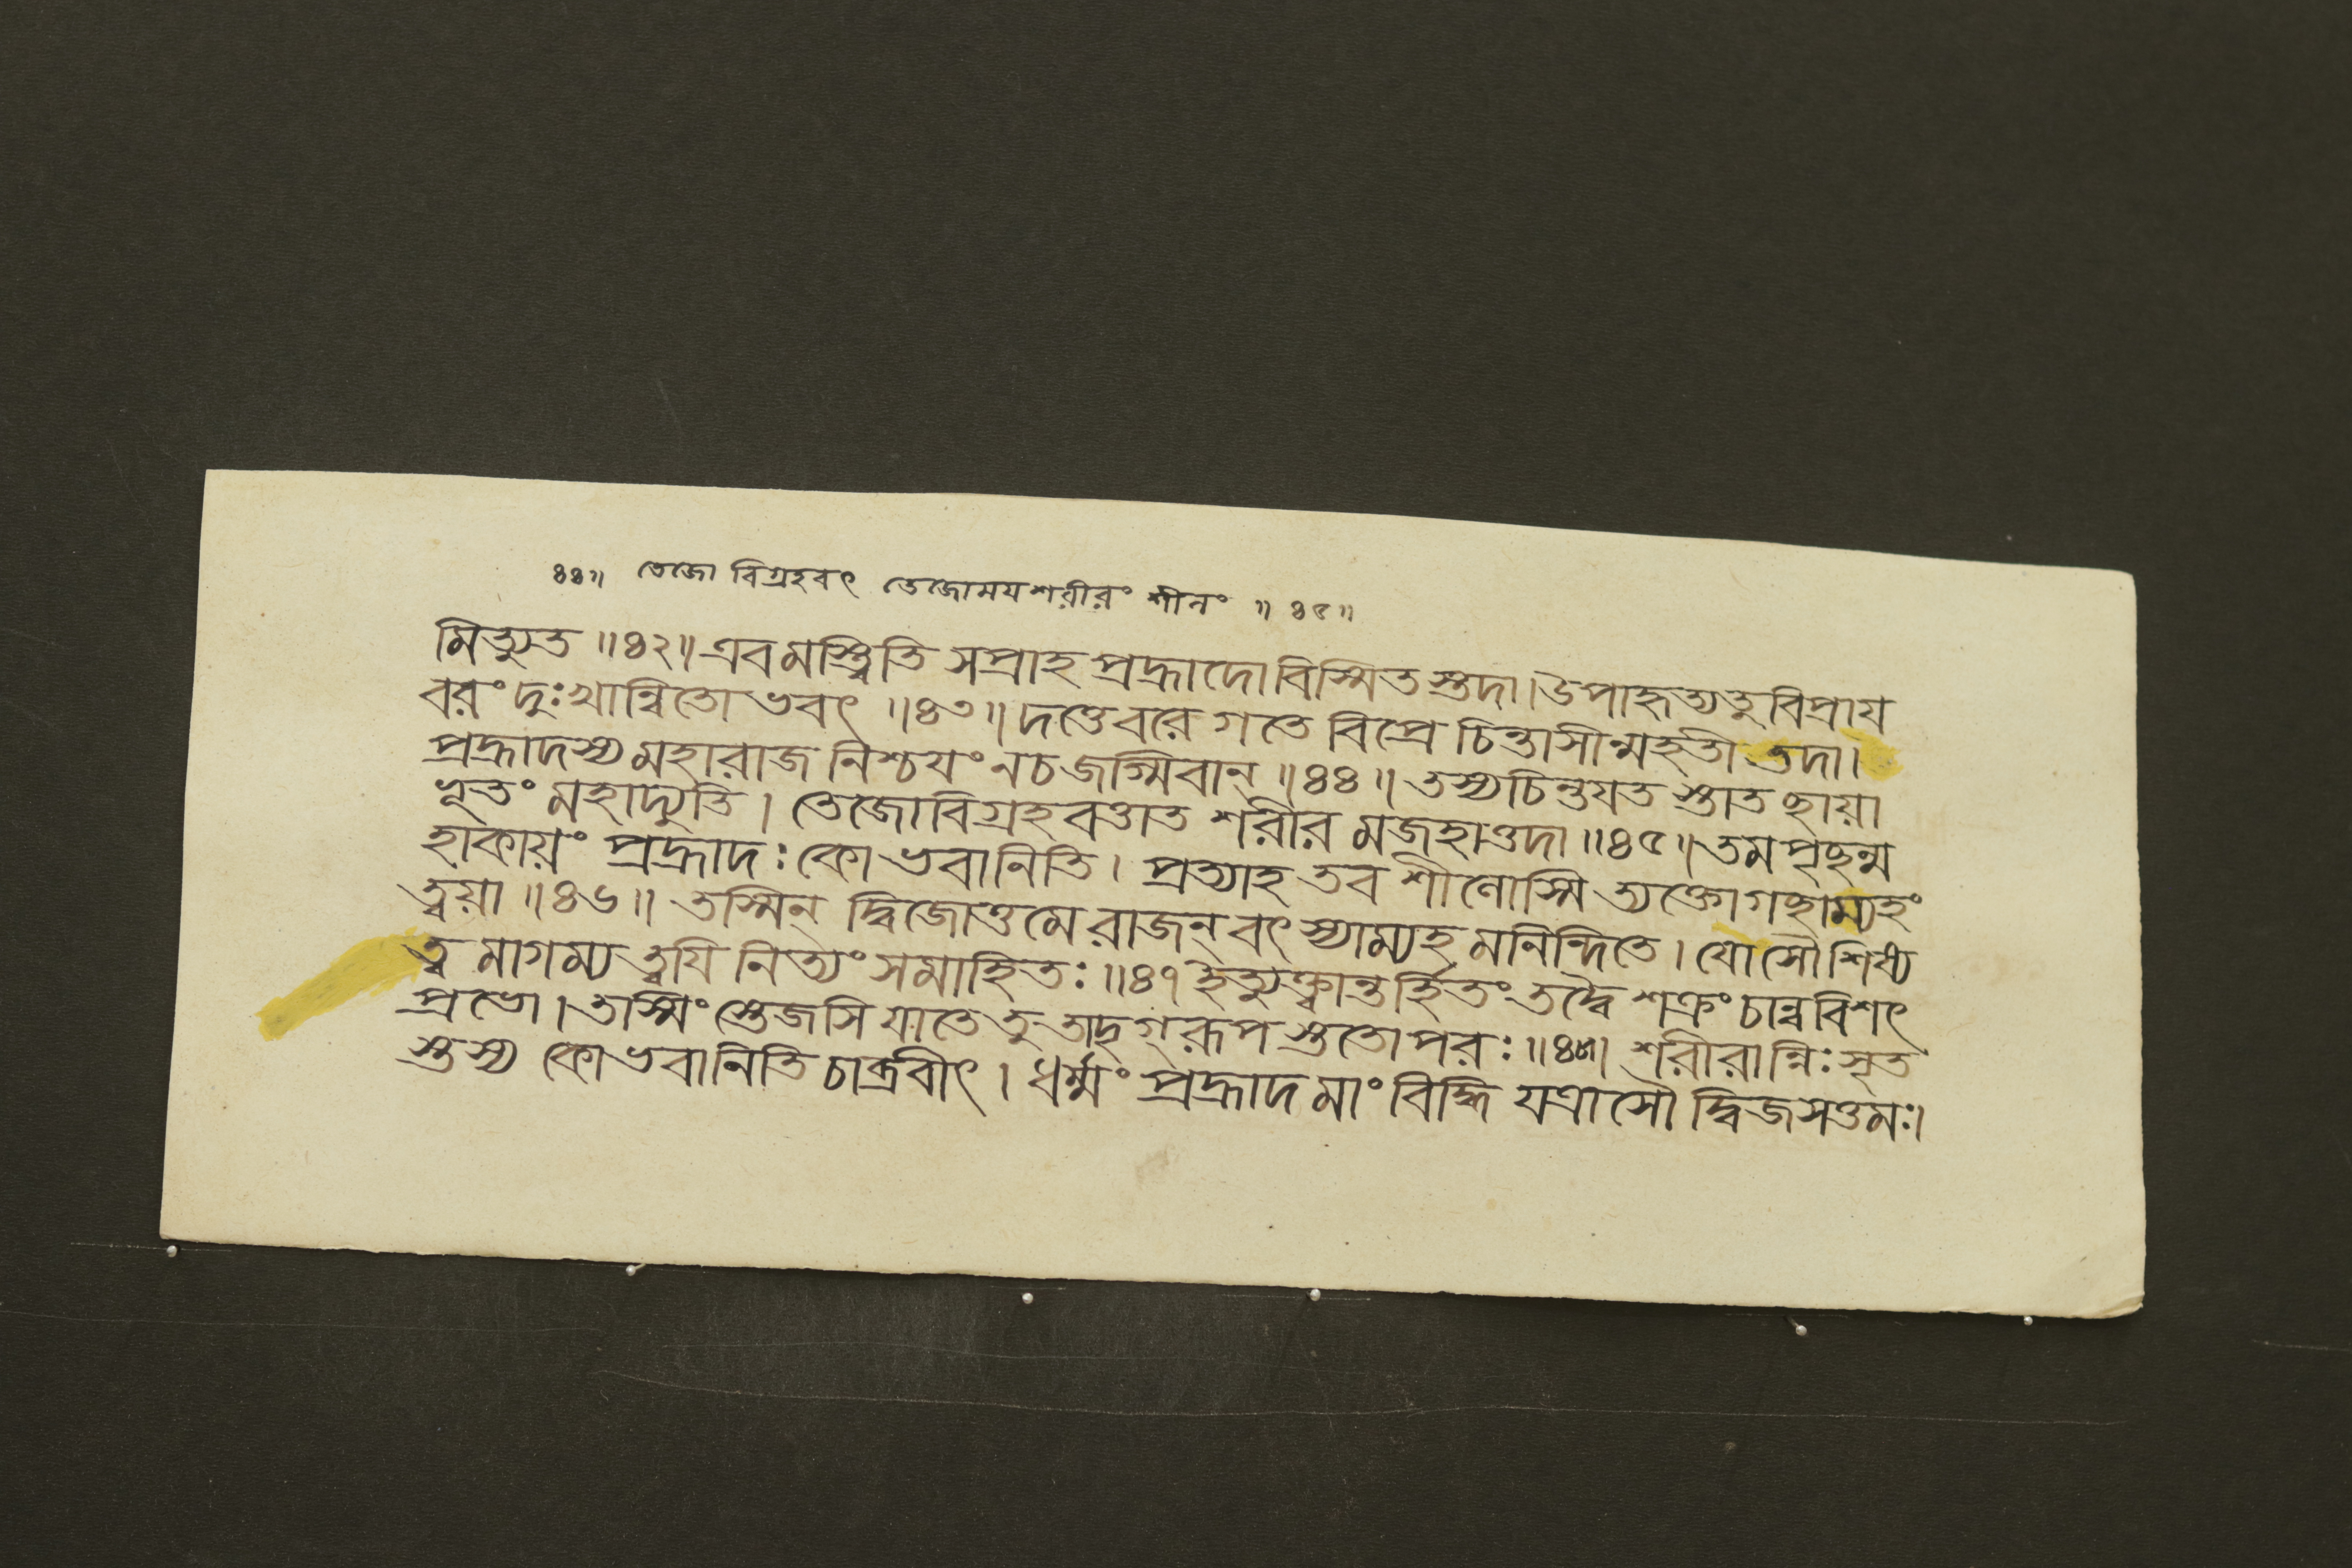 ৪৪॥ তেজো বিগ্রহবৎ তেজোময়শরীরং শীলং ॥ ৪৫॥
মিত্যুত ॥৪২॥ এবমস্ত্বিতি সপ্রাহ প্রহ্লাদো বিস্মিতস্তদা। উপাহৃত্যতু বিপ্রায
বরং দুঃখান্বিতো ভবৎ ॥৪৩॥ দত্তেবরে গতে বিপ্রে চিন্তাসীন্মহতী তদা।
প্রহ্লাদস্য মহারাজ নিশ্চযং নচ জগ্মিবান্ ॥৪৪॥ তস্যচিন্তযত স্তাত ছায়া
ভূতং মহাদ্যুতি। তেজোবিগ্রহবত্তাত শরীর মজহাত্তদা ॥৪৫॥ তমপৃছন্ম
হাকায়ং প্রহ্লাদঃ কো ভবানিতি। প্রত্যাহ তব শীলোস্মি ত্যক্তোগছাম্যহং
ত্বয়া ॥৪৬॥ তস্মিন্ দ্বিজোত্তমে রাজন্ বৎস্যাম্যহ মনিন্দিতে। যোসৌ শিষ্য
ত্ব মাগম্য ত্বযি নিত্যং সমাহিতঃ ॥৪৭ ইত্যুক্ত্বান্তর্হিতং তদ্বৈ শক্রং চান্নবিশৎ
প্রভো। তস্মিং স্তেজসি যাতে তু তাদৃগ্রূপ স্ততোপরঃ ॥৪৮॥ শরীরান্নিঃসৃত
স্তস্য কো ভবানিতি চাব্রবীৎ। ধর্ম্মং প্রহ্লাদ মাং বিদ্ধি যত্রাসৌ দ্বিজসত্তমঃ।